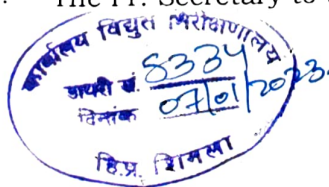 The Pr. Secretary to
कार्यालय विद्युत निरीक्षणालय
डायरी सं. 8334
दिनांक 07/01/2023.
हि.प्र. शिमला